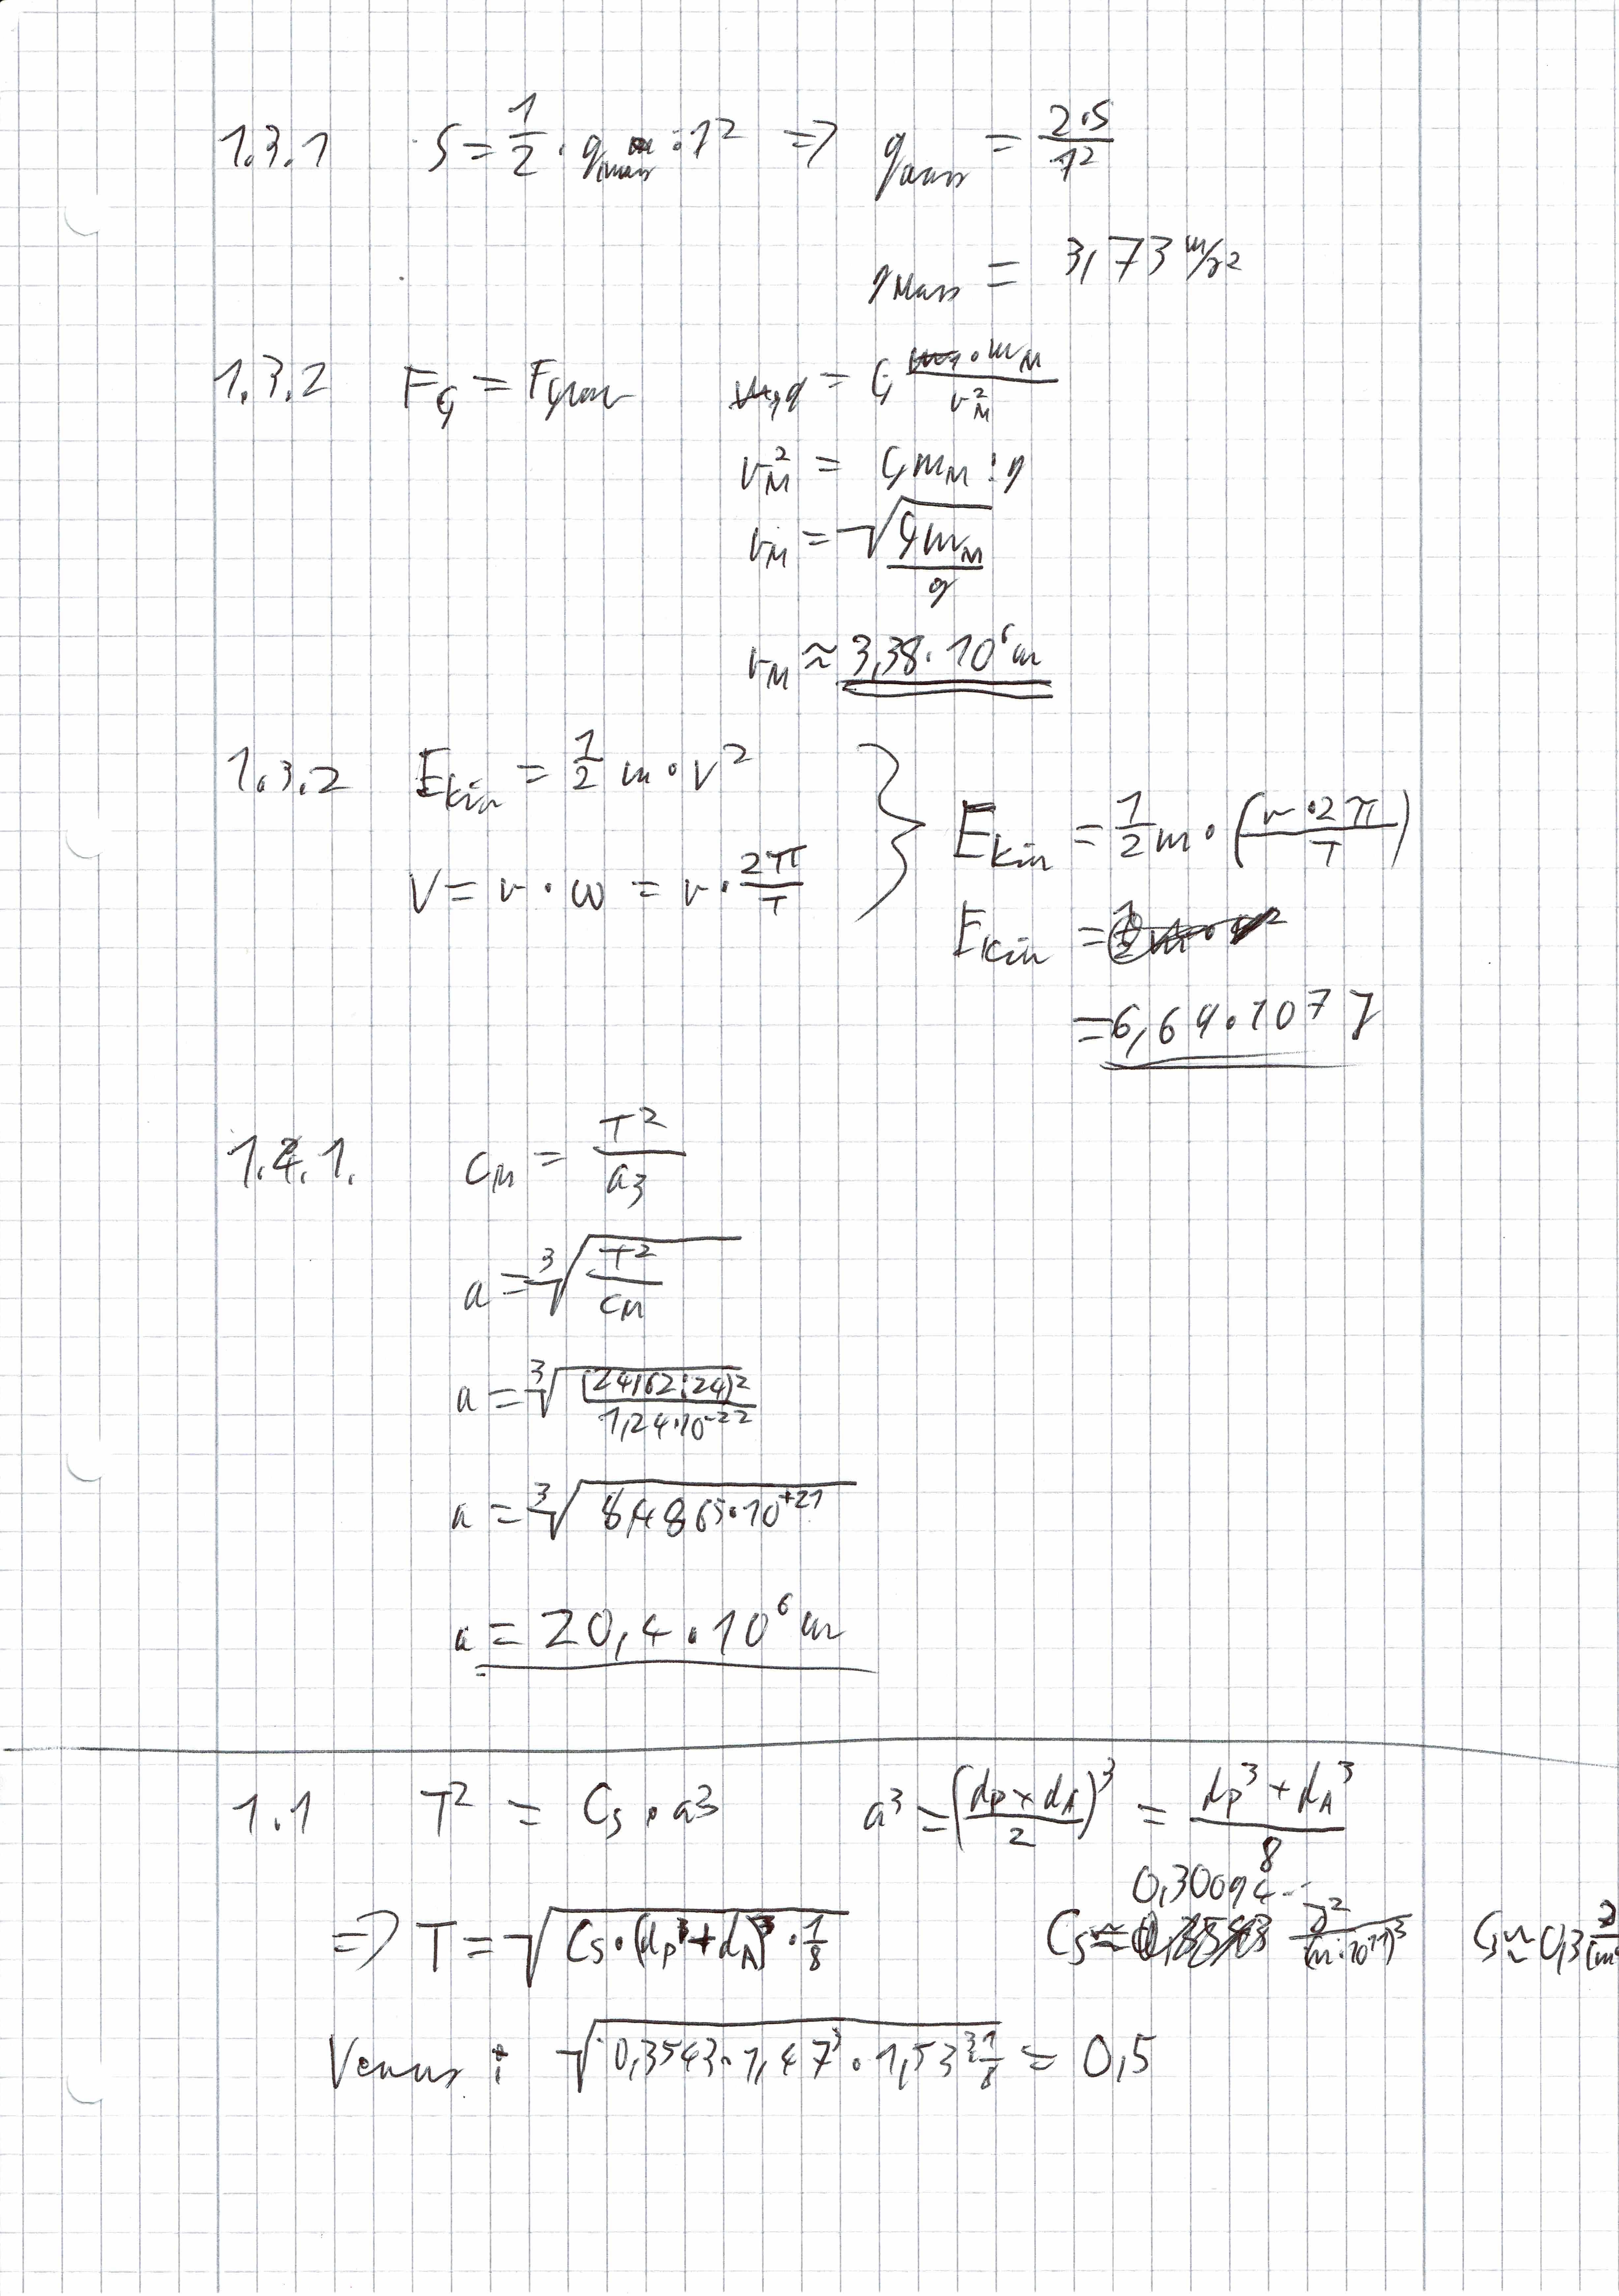 1.3.1 S = 1/2 · g_Mars · t² => g_Mars = 2·S/t²
g_Mars = 3,73 m/s²
1.3.2 F_G = F_Grav m₁g = G m₁·m_M/r_M²
r_M² = G m_M : g
r_M = √(G m_M/g)
r_M ≈ 3,38·10⁶ m
1.3.2 E_kin = 1/2 m·v²
V = r·ω = r·2π/T
E_kin = 1/2 m·(r·2π/T)
E_kin =
= 6,64·10⁷ J
1.4.1. C_M = T²/a3
a = ³√(T²/C_M)
a = ³√((24,62:24)²/1,24·10⁻²²)
a = ³√(8,4865·10⁺²¹)
a = 20,4·10⁶ m
1.1 T² = C_S · a³ a³ = (d_P + d_A/2)³ = d_P³ + d_A³/8
0,30094
=> T = √(C_S·(d_P³+d_A)³·1/8) C_S ≈ a²/(m·10¹¹)³ C_S ≈ 0,3
Venus: √(0,3543·1,47³·1,53³·1/8) = 0,5